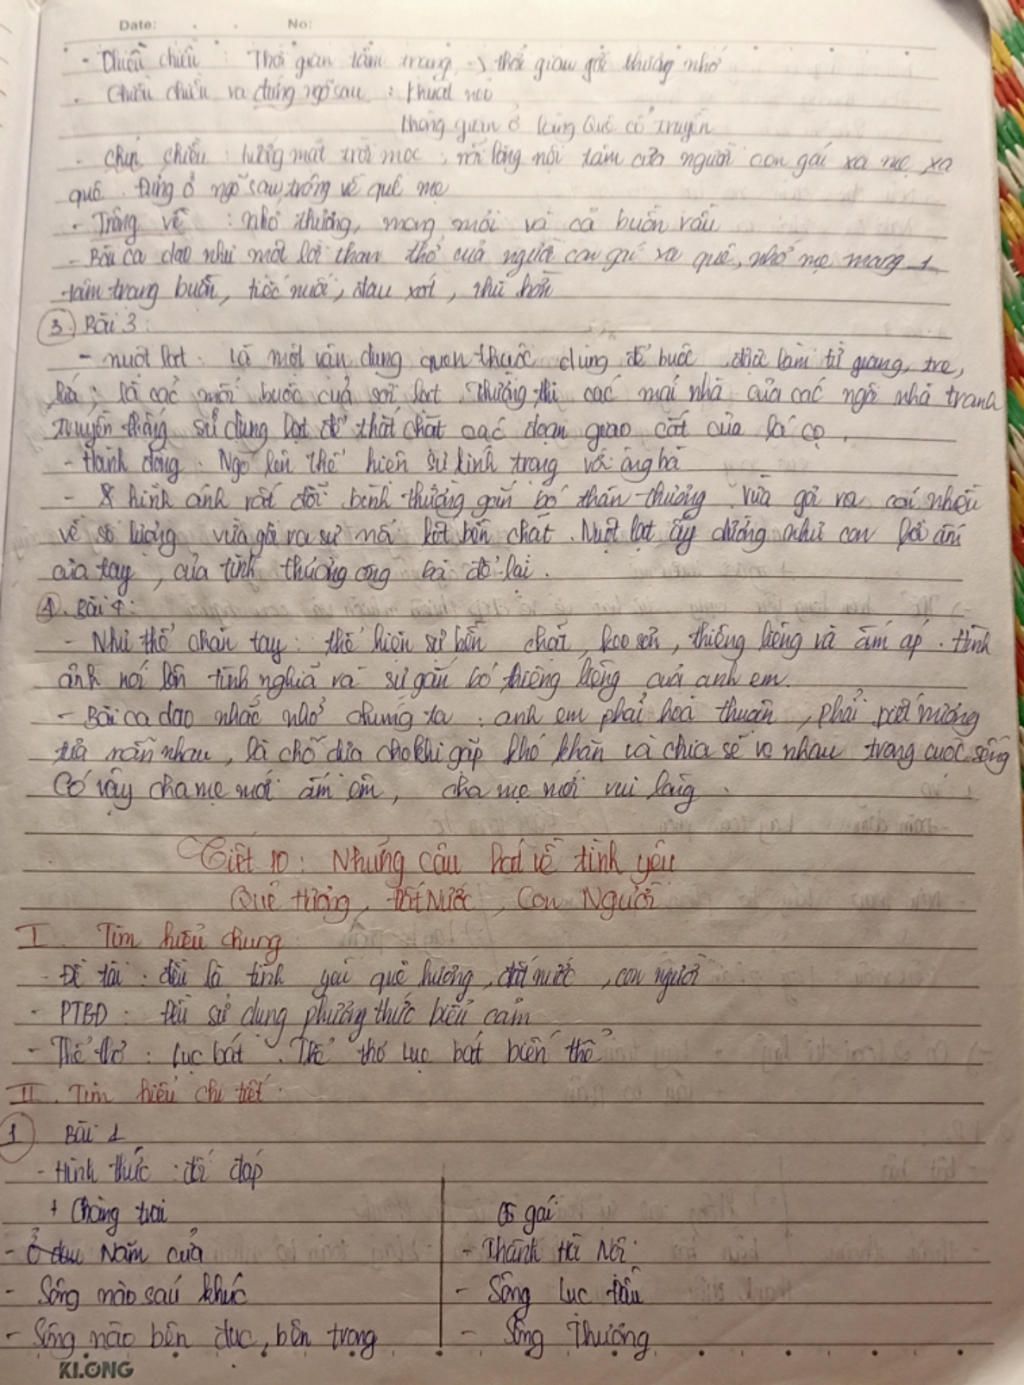 Date: . . No:
- Chiều chiều : Thời gian tâm trạng -> thời gian gợi thương nhớ
- Chiều chiều ra đứng ngõ sau :
không gian ở làng Quê cổ truyền
- chiều chiều : hướng mặt trời mọc : nỗi lòng nội tâm của người con gái xa mẹ xa
quê. Đứng ở ngõ sau, trông về quê mẹ
- Trông về : nhớ thương, mong mỏi và cả buồn rầu
- Bài ca dao như một lời than thở của người con gái xa quê, nhớ mẹ mang 1
tâm trạng buồn, tiếc nuối, đau xót,
3. Bài 3:
- nuột lạt : là một vận dụng quen thuộc dùng để buộc, được làm từ giang, tre,
là các mối buộc của sợi lạt. Thường thì các mái nhà của các ngôi nhà tranh
truyền thống sử dụng lạt để thắt chặt các đoạn giao cắt của lá cọ.
- Hành động : Ngó lên thể hiện sự kính trọng với ông bà
- hình ảnh rất đỗi bình thường gắn bó thân thương vừa gợi ra cái nhiều
về số lượng vừa gợi ra sự nối kết bền chặt. Nuột lạt ấy dường như còn hơi ấm
của tay, của tình thương ông bà để lại.
4. Bài 4:
- Như thể chân tay : thể hiện sự bền chặt, keo sơn, thiêng liêng và ấm áp. Hình
ảnh nói lên tình nghĩa và sự gắn bó thiêng liêng của anh em.
- Bài ca dao nhắc nhở chúng ta : anh em phải hoà thuận, phải biết nương
tựa lẫn nhau, là chỗ dựa cho khi gặp khó khăn và chia sẻ vs nhau trong cuộc sống
Có vậy cha mẹ mới ấm êm, cha mẹ mới vui lòng.
Tiết 10 : Những câu hát về tình yêu
Quê Hương, Đất Nước, Con Người
I. Tìm hiểu chung
- Đề tài : đều là tình yêu quê hương, đất nước, con người
- PTBĐ : Đều sử dụng phương thức biểu cảm
- Thể thơ : lục bát. Thể thơ lục bát biến thể
II. Tìm hiểu chi tiết:
1 Bài 1
- Hình thức : đối đáp
+ Chàng trai Cô gái
- Ở đâu Năm cửa - Thành Hà Nội
- Sông nào sáu khúc - Sông Lục Đầu
- Sông nào bên đục, bên trong - Sông Thương
KLONG